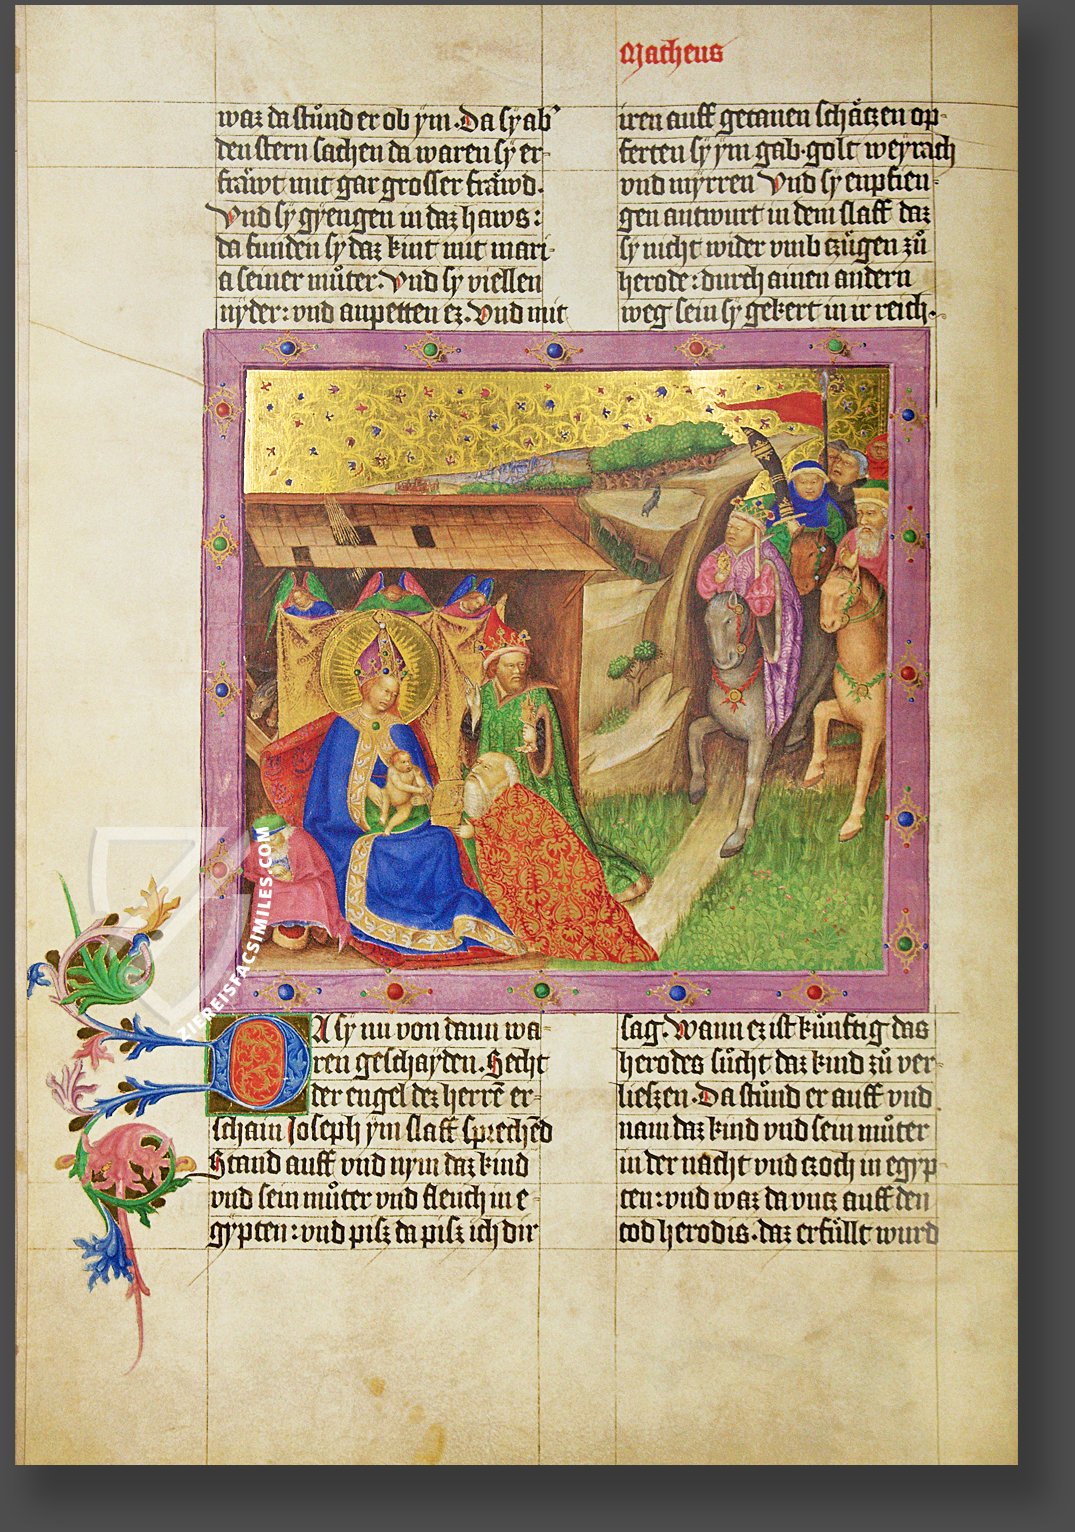 Matheus
waz da stůnd er ob ÿm. Da sÿ abʼ
den stern sachen da waren sÿ er-
fräwt mit gar grosser fräwd.
Vnd sÿ gÿengen in daz haws:
da funden sÿ daz kint mit mari-
a seiner můter. Vnd sÿ viellen
nÿder: vnd anpetten ez. Vnd mit
iren auff getanen schätzen op-
ferten sÿ ÿm gab. golt weÿrach
vnd mÿrren Vnd sÿ enpfien-
gen antwurt in dem slaff daz
sÿ nicht wider vmb czügen zů
herode: durch ainen andern
weg sein sÿ gekert in ir reich.
DA sÿ nu von dann wa-
ren geschaÿden. Secht
der engel dez herrē er-
schain Joseph ÿm slaff sprechēd
Stand auff vnd nym daz kind
vnd sein můter vnd fleuch in e-
gÿpten: vnd pisz da pisz ich dir
sag. Wann ez ist künftig das
herodes sůcht daz kind zů ver-
liesen. Da stůnd er auff vnd
nam daz kind vnd sein můter
in der nacht vnd czoch in egyp-
ten: vnd waz da vntz auff den
tod herodis. daz erfüllt wurd
ZIEREISFACSIMILES.COM